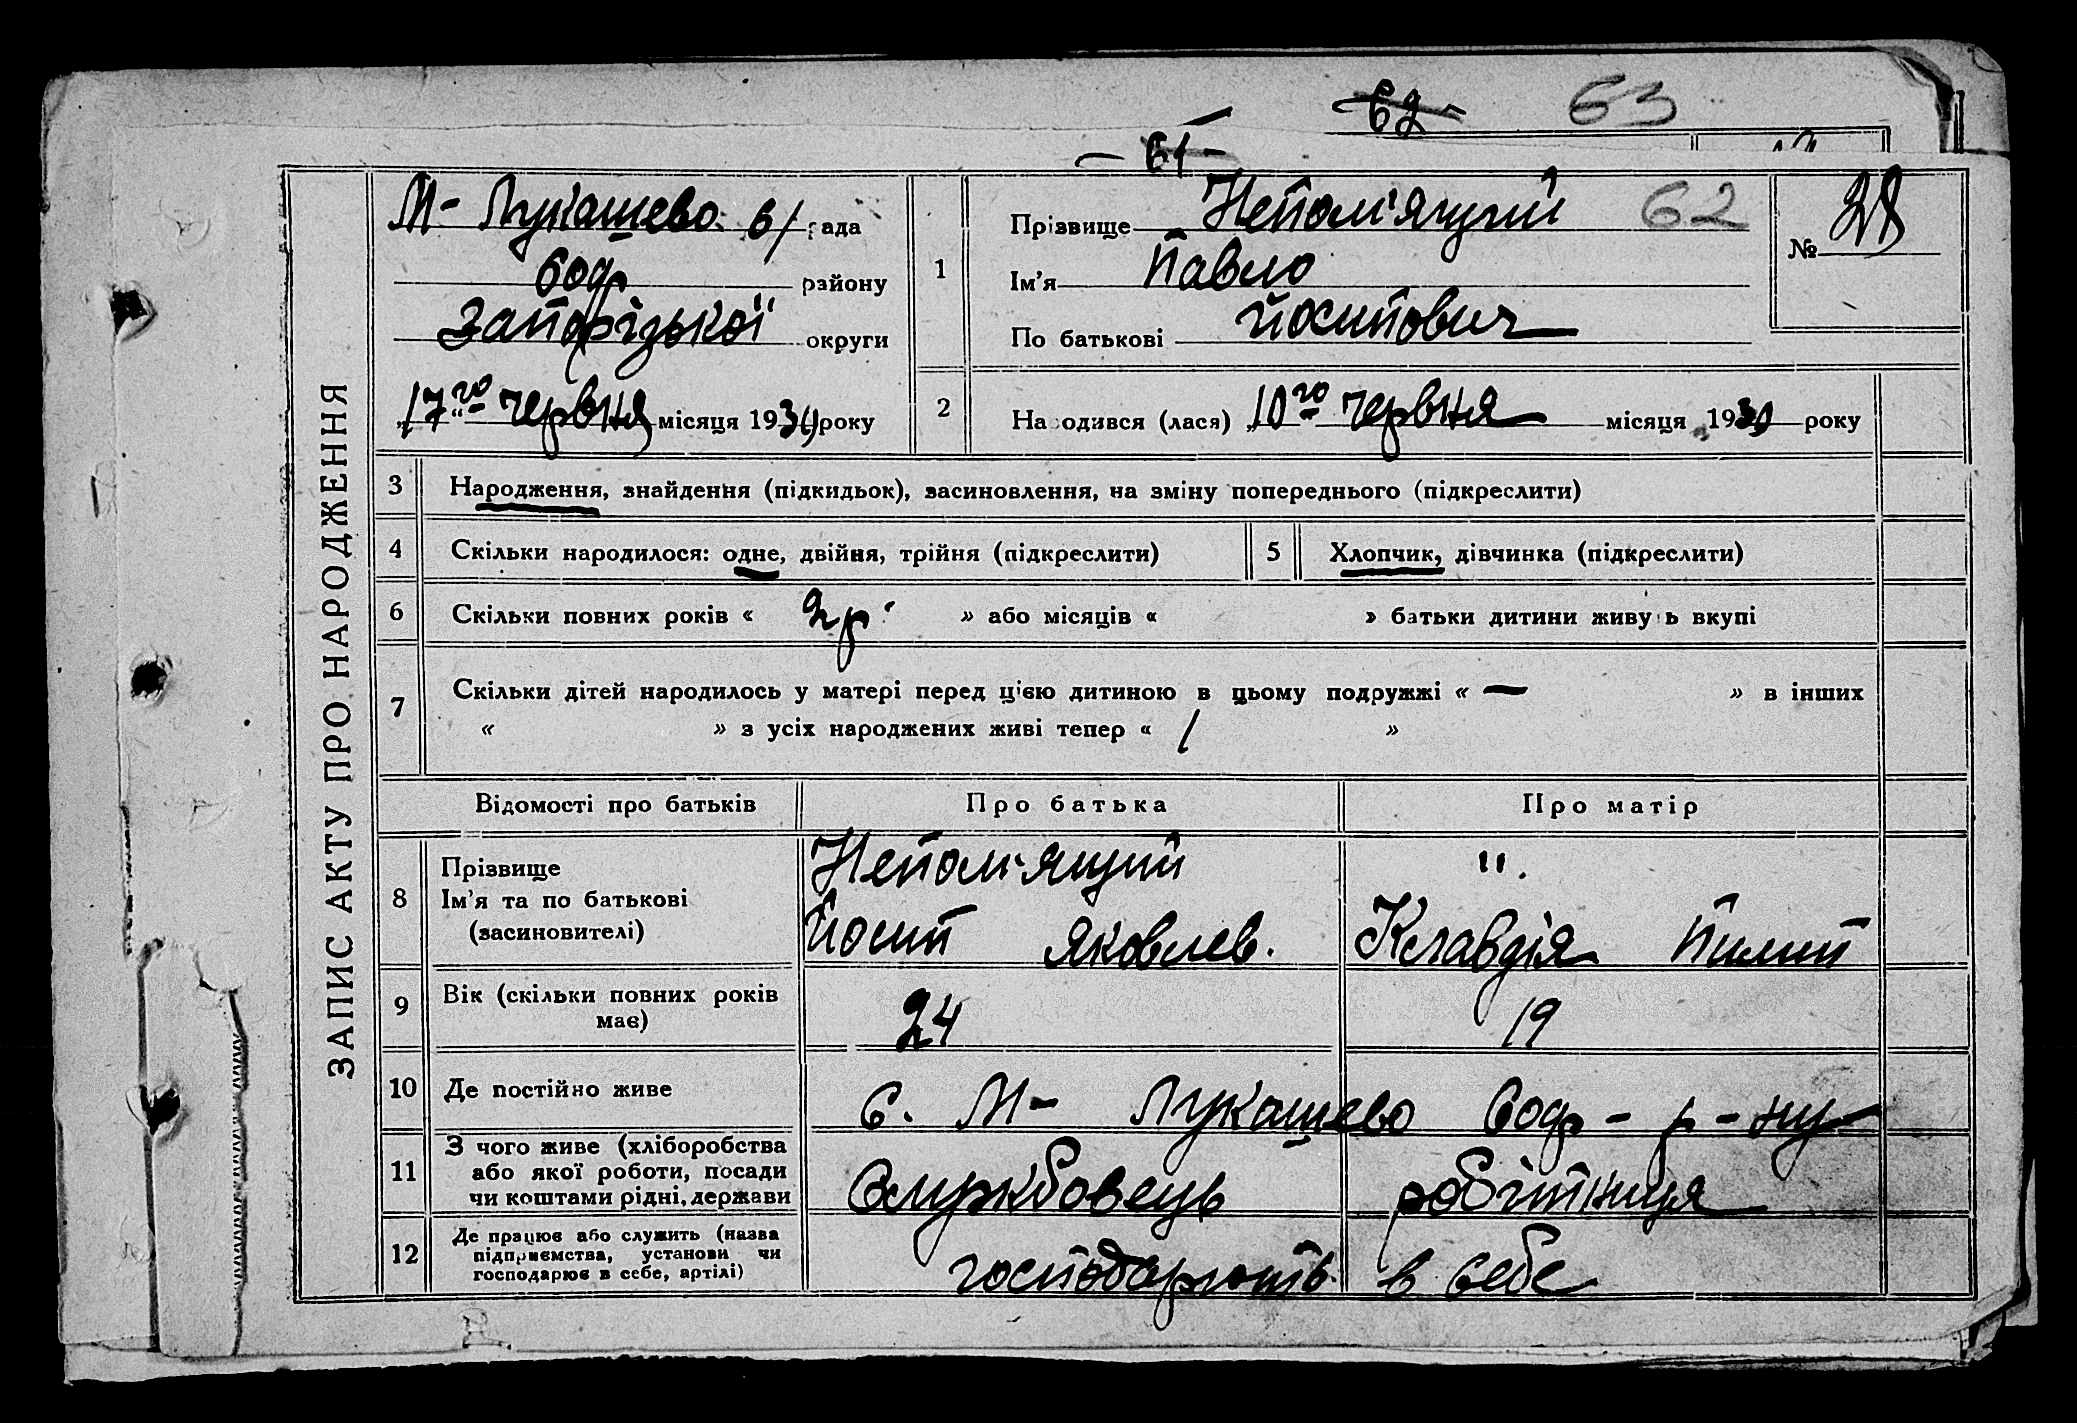 62 63
61
ЗАПИС АКТУ ПРО НАРОДЖЕННЯ
М- Лукашево с/ рада
Соф району
Запорізької округи
17го червня місяця 1930 року
1
Прізвище Непом'ящий 62
Ім'я Павло
По батькові Йосипович
№ 28
2 Народився (лася) 10го червня місяця 1930 року
3 Народження, знайдення (підкидьок), засиновлення, на зміну попереднього (підкреслити)
4 Скільки народилося: одне, двійня, трійня (підкреслити) 5 Хлопчик, дівчинка (підкреслити)
6 Скільки повних років « 2 р. » або місяців « » батьки дитини живуть вкупі
7 Скільки дітей народилось у матері перед цією дитиною в цьому подружжі « — » в інших
« » з усіх народжених живі тепер « 1 »
Відомості про батьків Про батька Про матір
8 Прізвище Непом'ящий "
Ім'я та по батькові Йосип Яковлев. Клавдія Пилип
(засиновителі)
9 Вік (скільки повних років 24 19
має)
10 Де постійно живе С. М- Лукашево Соф - р - ну
11 З чого живе (хліборобства
або якої роботи, посади Службовець робітниця
чи коштами рідні, держави
12 Де працює або служить (назва
підприємства, установи чи господарюють в себе
господарює в себе, артілі)